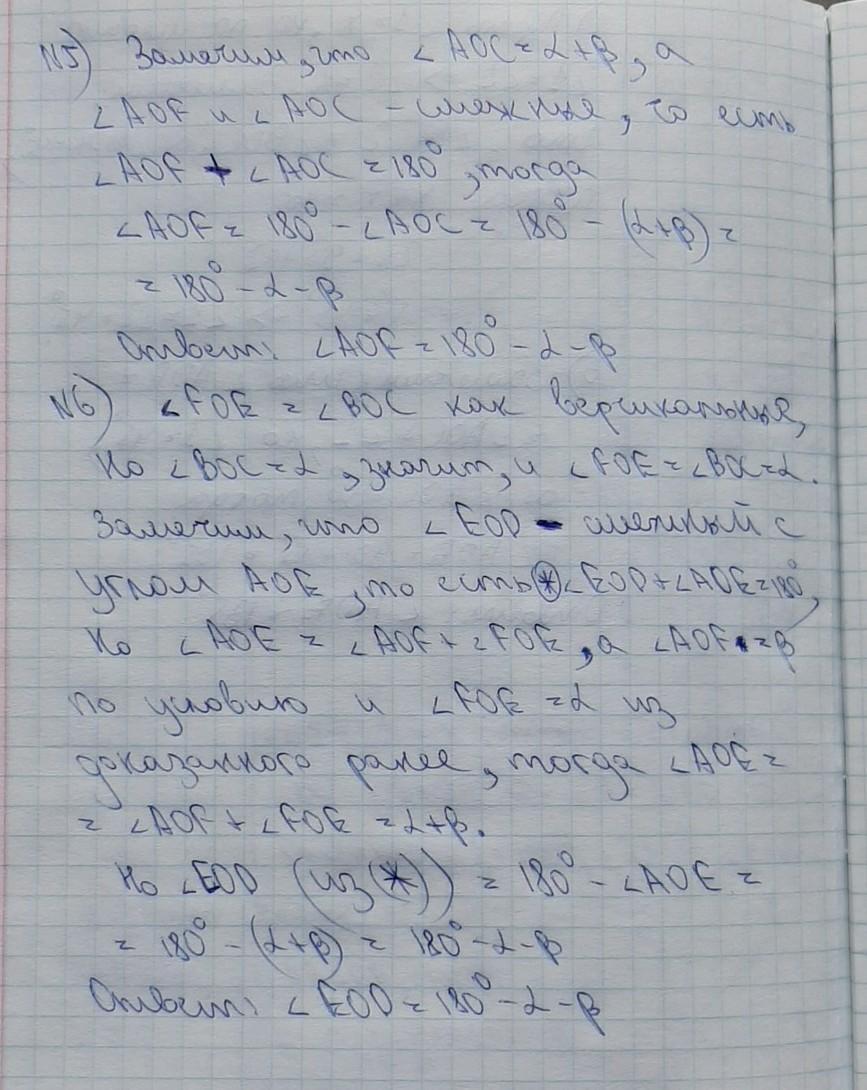 N5) Замечим, что ∠AOC = α+β, а
∠AOF и ∠AOC - смежные, то есть
∠AOF + ∠AOC = 180°, тогда
∠AOF = 180° - ∠AOC = 180° - (α+β) =
= 180° - α - β
Ответ: ∠AOF = 180° - α - β
N6) ∠FOE = ∠BOC как вертикальные,
Но ∠BOC = α, значит, и ∠FOE = ∠BOC = α.
Замечим, что ∠EOD - смежный с
углом AOE, то есть (*) ∠EOD + ∠AOE = 180°,
Но ∠AOE = ∠AOF + ∠FOE, а ∠AOF = β
по условию и ∠FOE = α из
доказанного ранее, тогда ∠AOE =
= ∠AOF + ∠FOE = α+β.
Но ∠EOD (из (*)) = 180° - ∠AOE =
= 180° - (α+β) = 180° - α - β
Ответ: ∠EOD = 180° - α - β